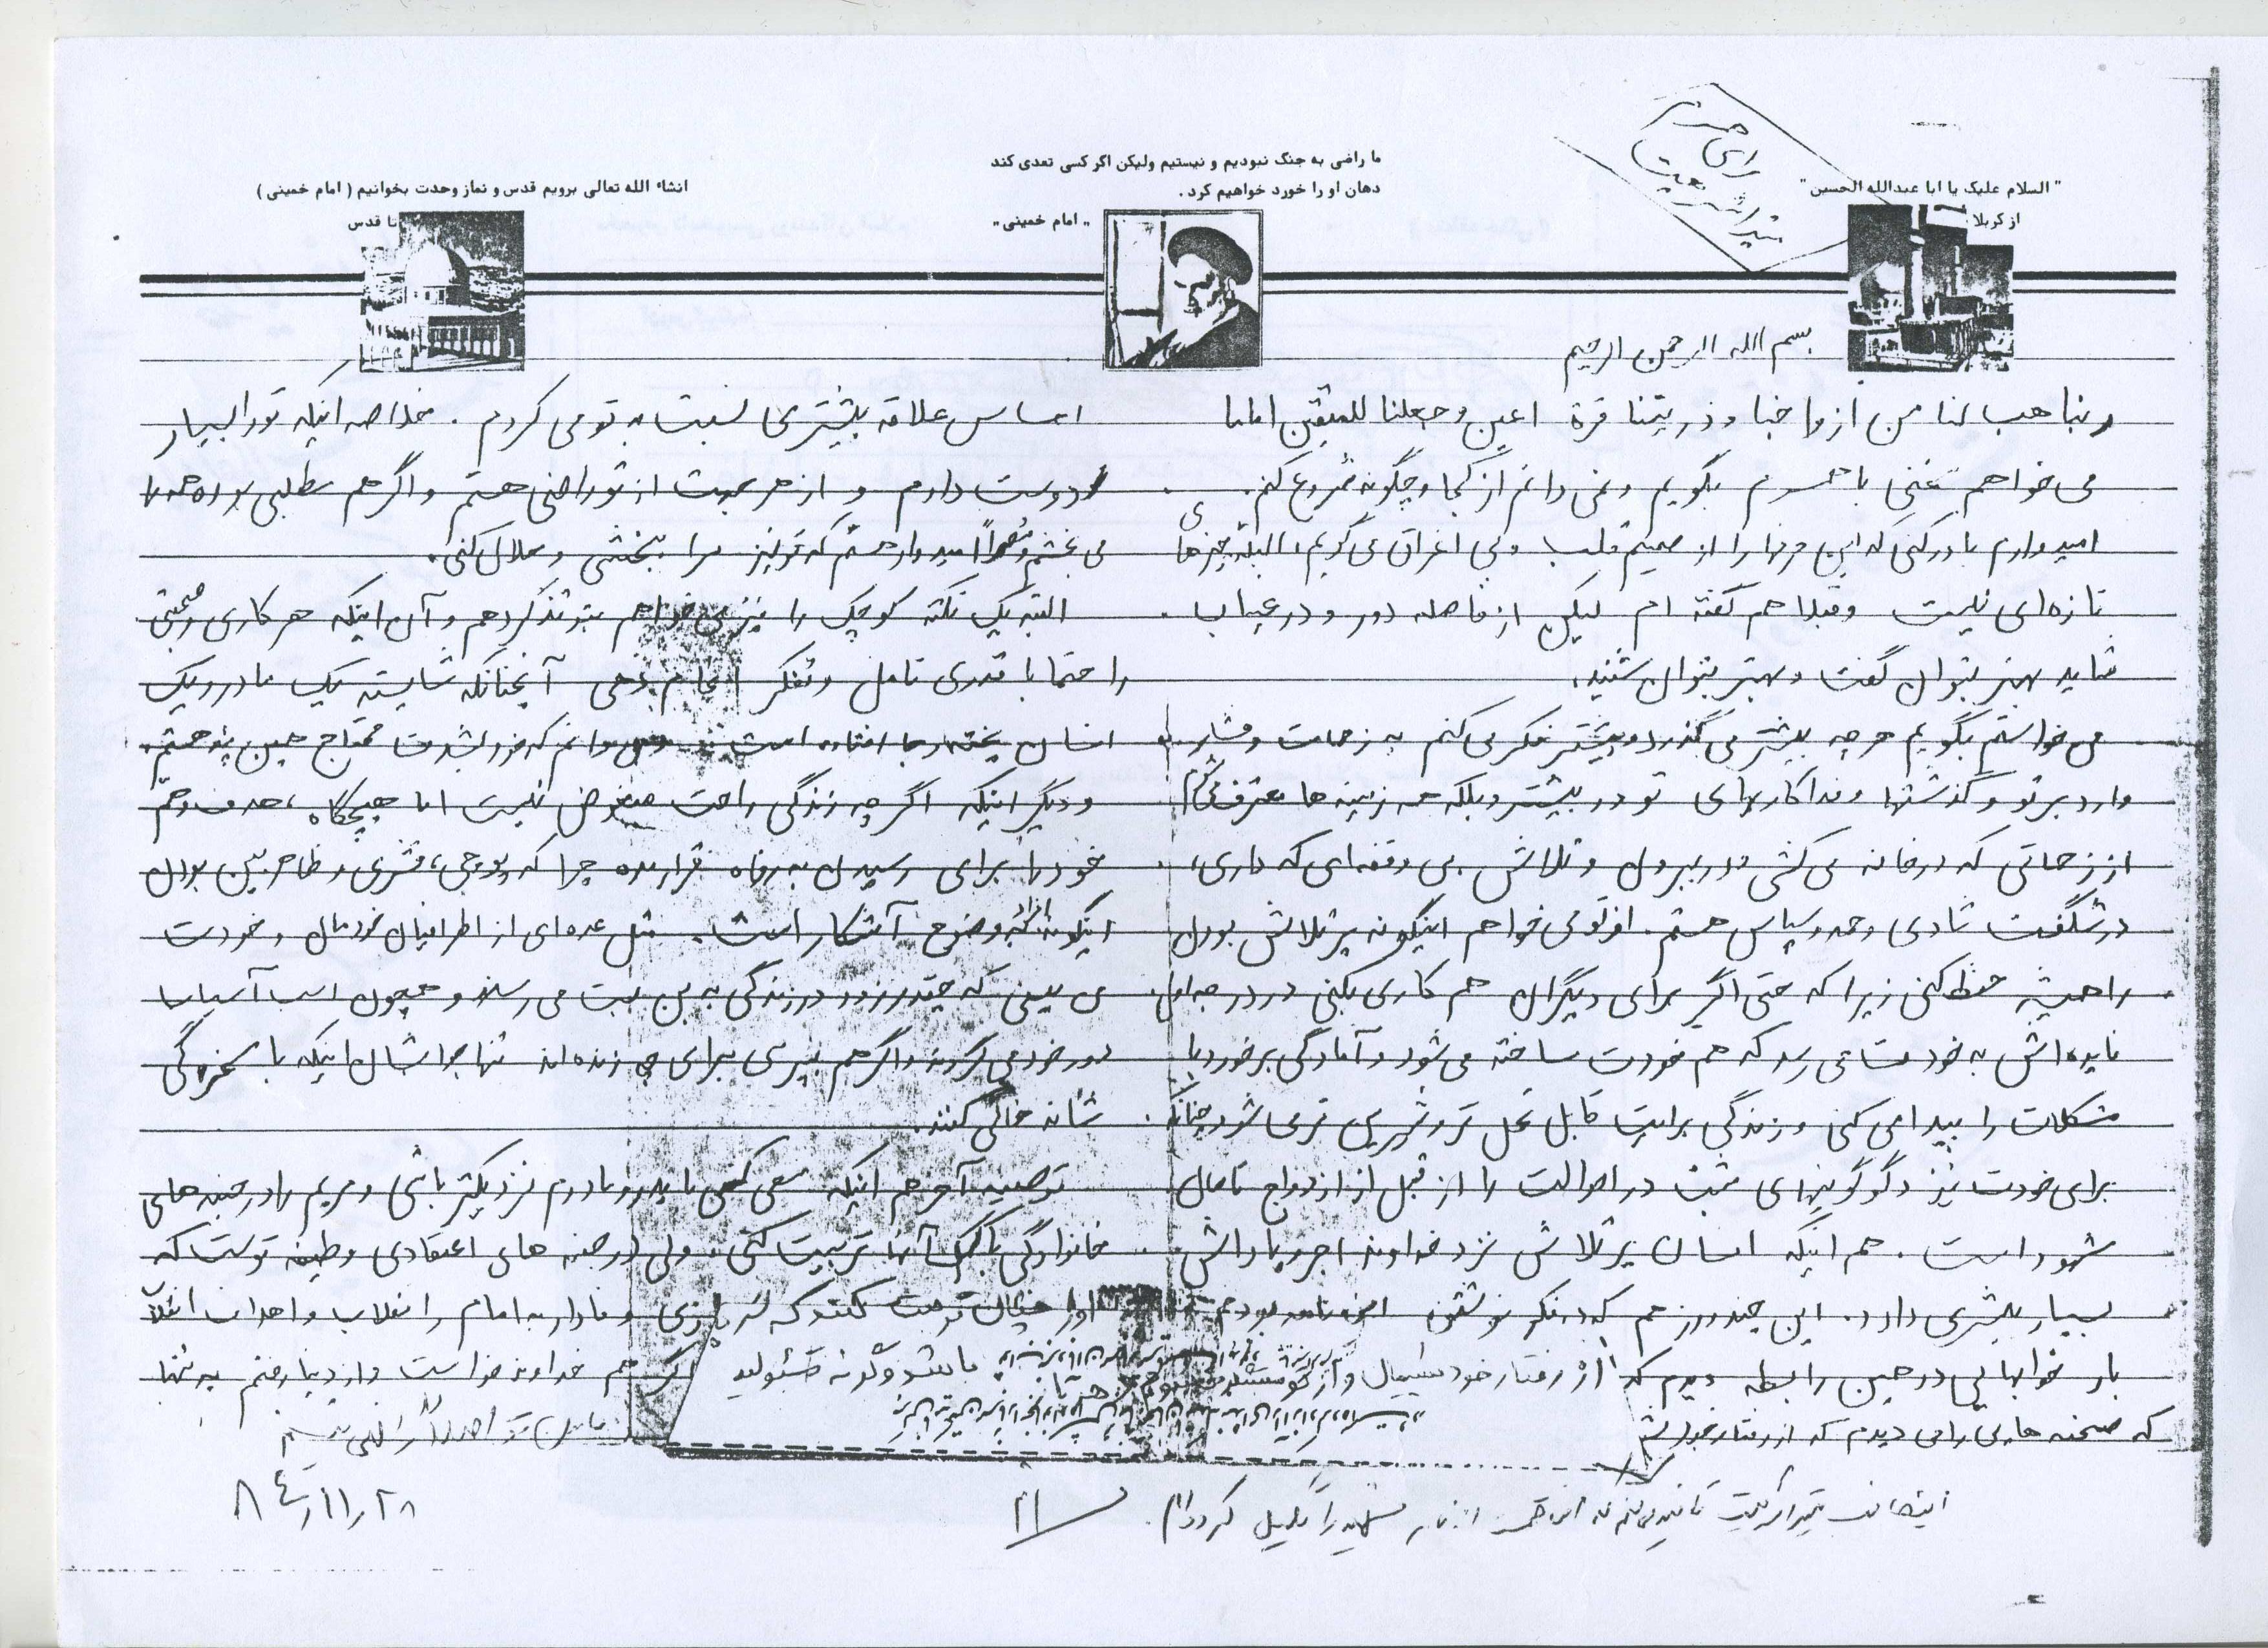 " السلام علیک یا ابا عبدالله الحسین "
از کربلا
ما راضی به جنگ نبودیم و نیستیم ولیکن اگر کسی تعدی کند
دهان او را خورد خواهیم کرد .
" امام خمینی "
انشاء الله تعالی برویم قدس و نماز وحدت بخوانیم ( امام خمینی )
تا قدس
بسم الله الرحمن الرحیم
ربنا هب لنا من ازواجنا و ذریتنا قرة اعین وجعلنا للمتقین اماما
می خواهم سخنی با همسرم بگویم و نمی دانم از کجا و چگونه شروع کنم .
امیدوارم باور کنی که این حرفها را از صمیم قلب و بی اغراق می گویم ، البته چیزهای
تازه ای نیست و قبلا هم گفته ام لیکن از فاصله دور و در غیاب
شاید بهتر بتوان گفت و بهتر بتوان شنید .
می خواستم بگویم هر چه بیشتر می گذرد و بیشتر فکر می کنم به زحمات و فشار
وارد بر تو و گذشتها و فداکاریهای تو در بیشتر و بلکه همه زمینه ها معترف می شوم
از زحماتی که در خانه می کشی و در بیرون و تلاش بی وقفه ای که داری ،
در شگفت شادی و حمد و سپاس هستم . از تو می خواهم اینگونه پر تلاش بودن
را همیشه حفظ کنی زیرا که حتی اگر برای دیگران هم کاری بکنی در درجه اول
فایده اش به خودت می رسد که هم خودت ساخته می شود و آمادگی برخورد با
مشکلات را پیدا می کنی و زندگی برایت قابل تحمل تر و شیرین تر می شود چنانکه
برای خودت نیز دگرگونیهای مثبت در احوالت را از قبل از ازدواج تا بحال
شهود است . هم اینکه انسان پر تلاش نزد خداوند اجر و پاداش
بسیار بیشتری دارد . این چند روز هم که در فکر نوشتن این نامه بودم
بار خوابهایی در همین رابطه دیدم که از رفتار خود پشیمان و از تو
که صحنه هایی را می دیدم که از رفتار خود
احساس علاقه بیشتری نسبت به تو می کردم . خلاصه اینکه تو را بسیار
دوست دارم و از هر جهت از تو راضی هستم و اگر هم مطلبی بوده همه را
می بخشم و امیدوار هستم که تو نیز مرا ببخشی و حلال کنی .
البته یک نکته کوچک را نیز می خواهم بتو تذکر دهم و آن اینکه هر کاری و صحبتی
را حتما با قدری تامل و تفکر انجام دهی آنچنانکه شایسته یک مادر و یک
انسان پخته و جا افتاده است می دانم که خود بشدت محتاج چنین پند هستم .
و دیگر اینکه اگر چه زندگی راحت مبغوض نیست اما هیچگاه ، هدف و هم
خود را برای رسیدن به رفاه قرار مده چرا که پوچی ، قشری و ظاهر بین بودن
اینگونه افراد به وضوح آشکار است . مثل عده ای از اطرافیان خودمان و خودت
می بینی که چقدر زود در زندگی به بن بست می رسند و همچون اسب آسیاب
دور خود می گردند و اگر هم بپرسی برای چه زنده اند تنها جوابشان اینکه با مسخره گی
شانه خالی کنند .
توصیه آخر هم اینکه سعی کنی با پدر و مادرم نزدیکتر باشی و مریم را در جنبه های
خانوادگی با کمک آنها تربیت کنی . ولی در جنبه های اعتقادی وظیفه توست که
او را چنان تربیت کنی که سربازی وفادار به امام و انقلاب و اهداف انقلاب
باشد و گرنه مسئولی اگر هم خداوند خواست و از دنیا رفتم به تنها
۸۴/۱۱/۲۸